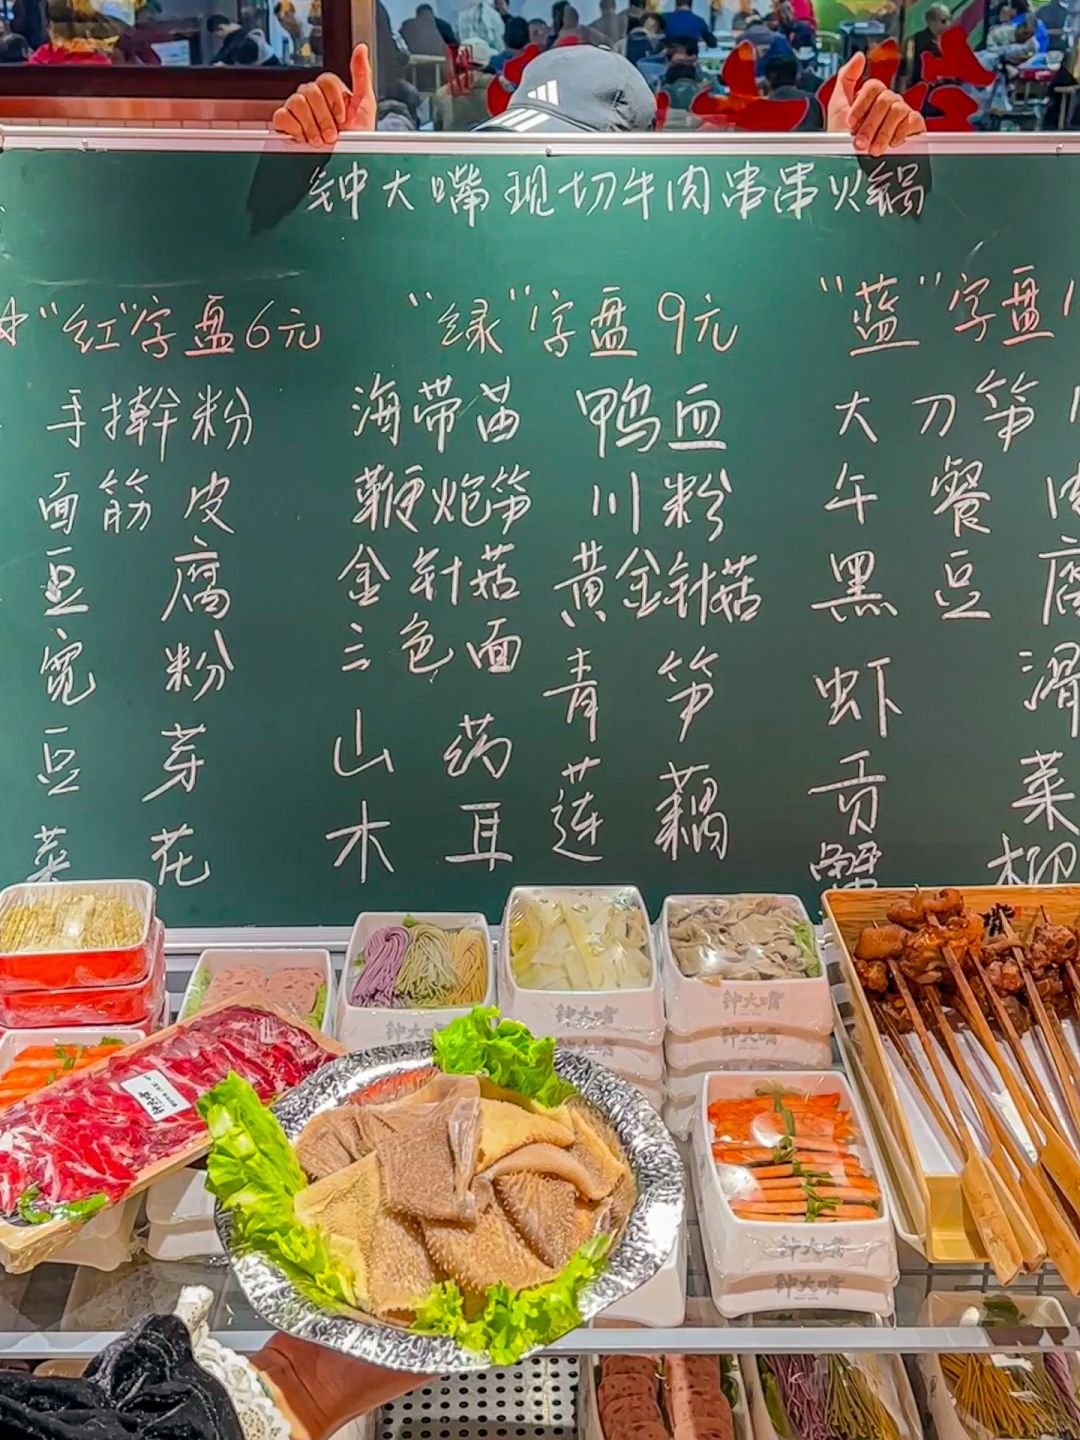 钟大嘴现切牛肉串串火锅
"红"字盘6元
"绿"字盘 9元
"蓝"字盘1
手擀粉
海带苗
鸭血
大刀笋
面筋皮
鞭炮笋
川粉
午餐肉
豆腐
金针菇
黄金针菇
黑豆腐
宽粉
三色面
青笋
虾滑
豆芽
山药
莲藕
贡菜
菜花
木耳
蟹柳
钟大嘴
钟大嘴
钟大嘴
钟大嘴
钟大嘴
钟大嘴